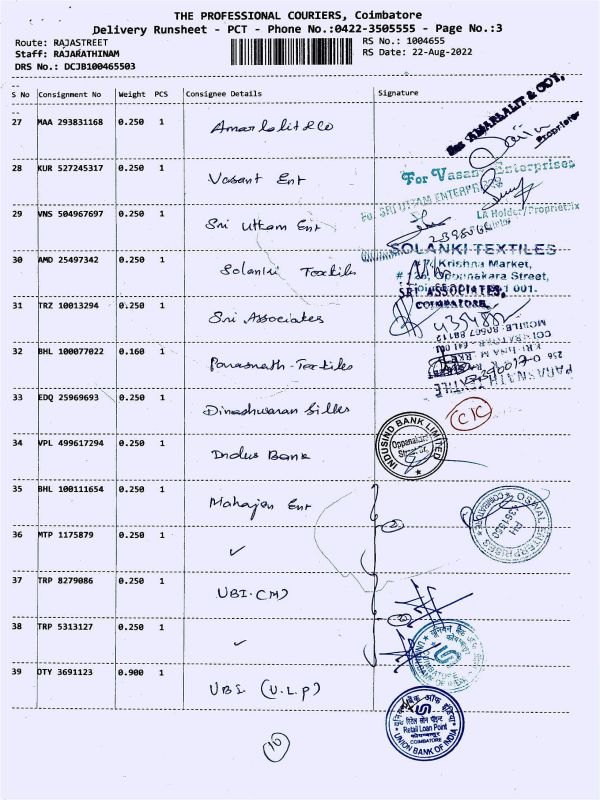 THE PROFESSIONAL COURIERS, Coimbatore
Delivery Runsheet - PCT - Phone No.:0422-3505555 - Page No.:3
Route: RAJASTREET
RS No.: 1004655
Staff: RAJARATHINAM
RS Date: 22-Aug-2022
DRS No.: DCJB100465503
S No Consignment No Weight PCS Consignee Details Signature
27 MAA 293831168 0.250 1 Amarlalit & Co
For AMARLALIT & COY,
Proprietor
28 KUR 527245317 0.250 1 Vasant Ent
For Vasant Enterprises
29 VNS 504967697 0.250 1 Sri Uttam Ent
For SRI UTTAM ENTERPRISES
30 AMD 25497342 0.250 1 Solanki Textiles
SOLANKI TEXTILES
Krishna Market,
Oppanakara Street,
31 TRZ 10013294 0.250 1 Sri Associates
SRI ASSOCIATES,
COIMBATORE.
32 BHL 100077022 0.160 1 Parasnath Textiles
PARASNATH TEXTILE
33 EDQ 25969693 0.250 1 Dinashwaran Silks
CIC
34 VPL 499617294 0.250 1 Indus Bank
INDUSIND BANK LIMITED
Oppanakara
Street,
35 BHL 100111654 0.250 1 Mahajan Ent
OSWAL ENTERPRISES
COIMBATORE
PH
36 MTP 1175879 0.250 1 ✓
2
37 TRP 8279086 0.250 1 UBI.CM)
38 TRP 5313127 0.250 1 ✓
2
यूनियन बैंक ऑफ इंडिया
UNION BANK OF INDIA
39 OTY 3691123 0.900 1 UBI (U.L.P)
यूनियन बैंक ऑफ इंडिया
Retail Loan Point
COIMBATORE
UNION BANK OF INDIA
10